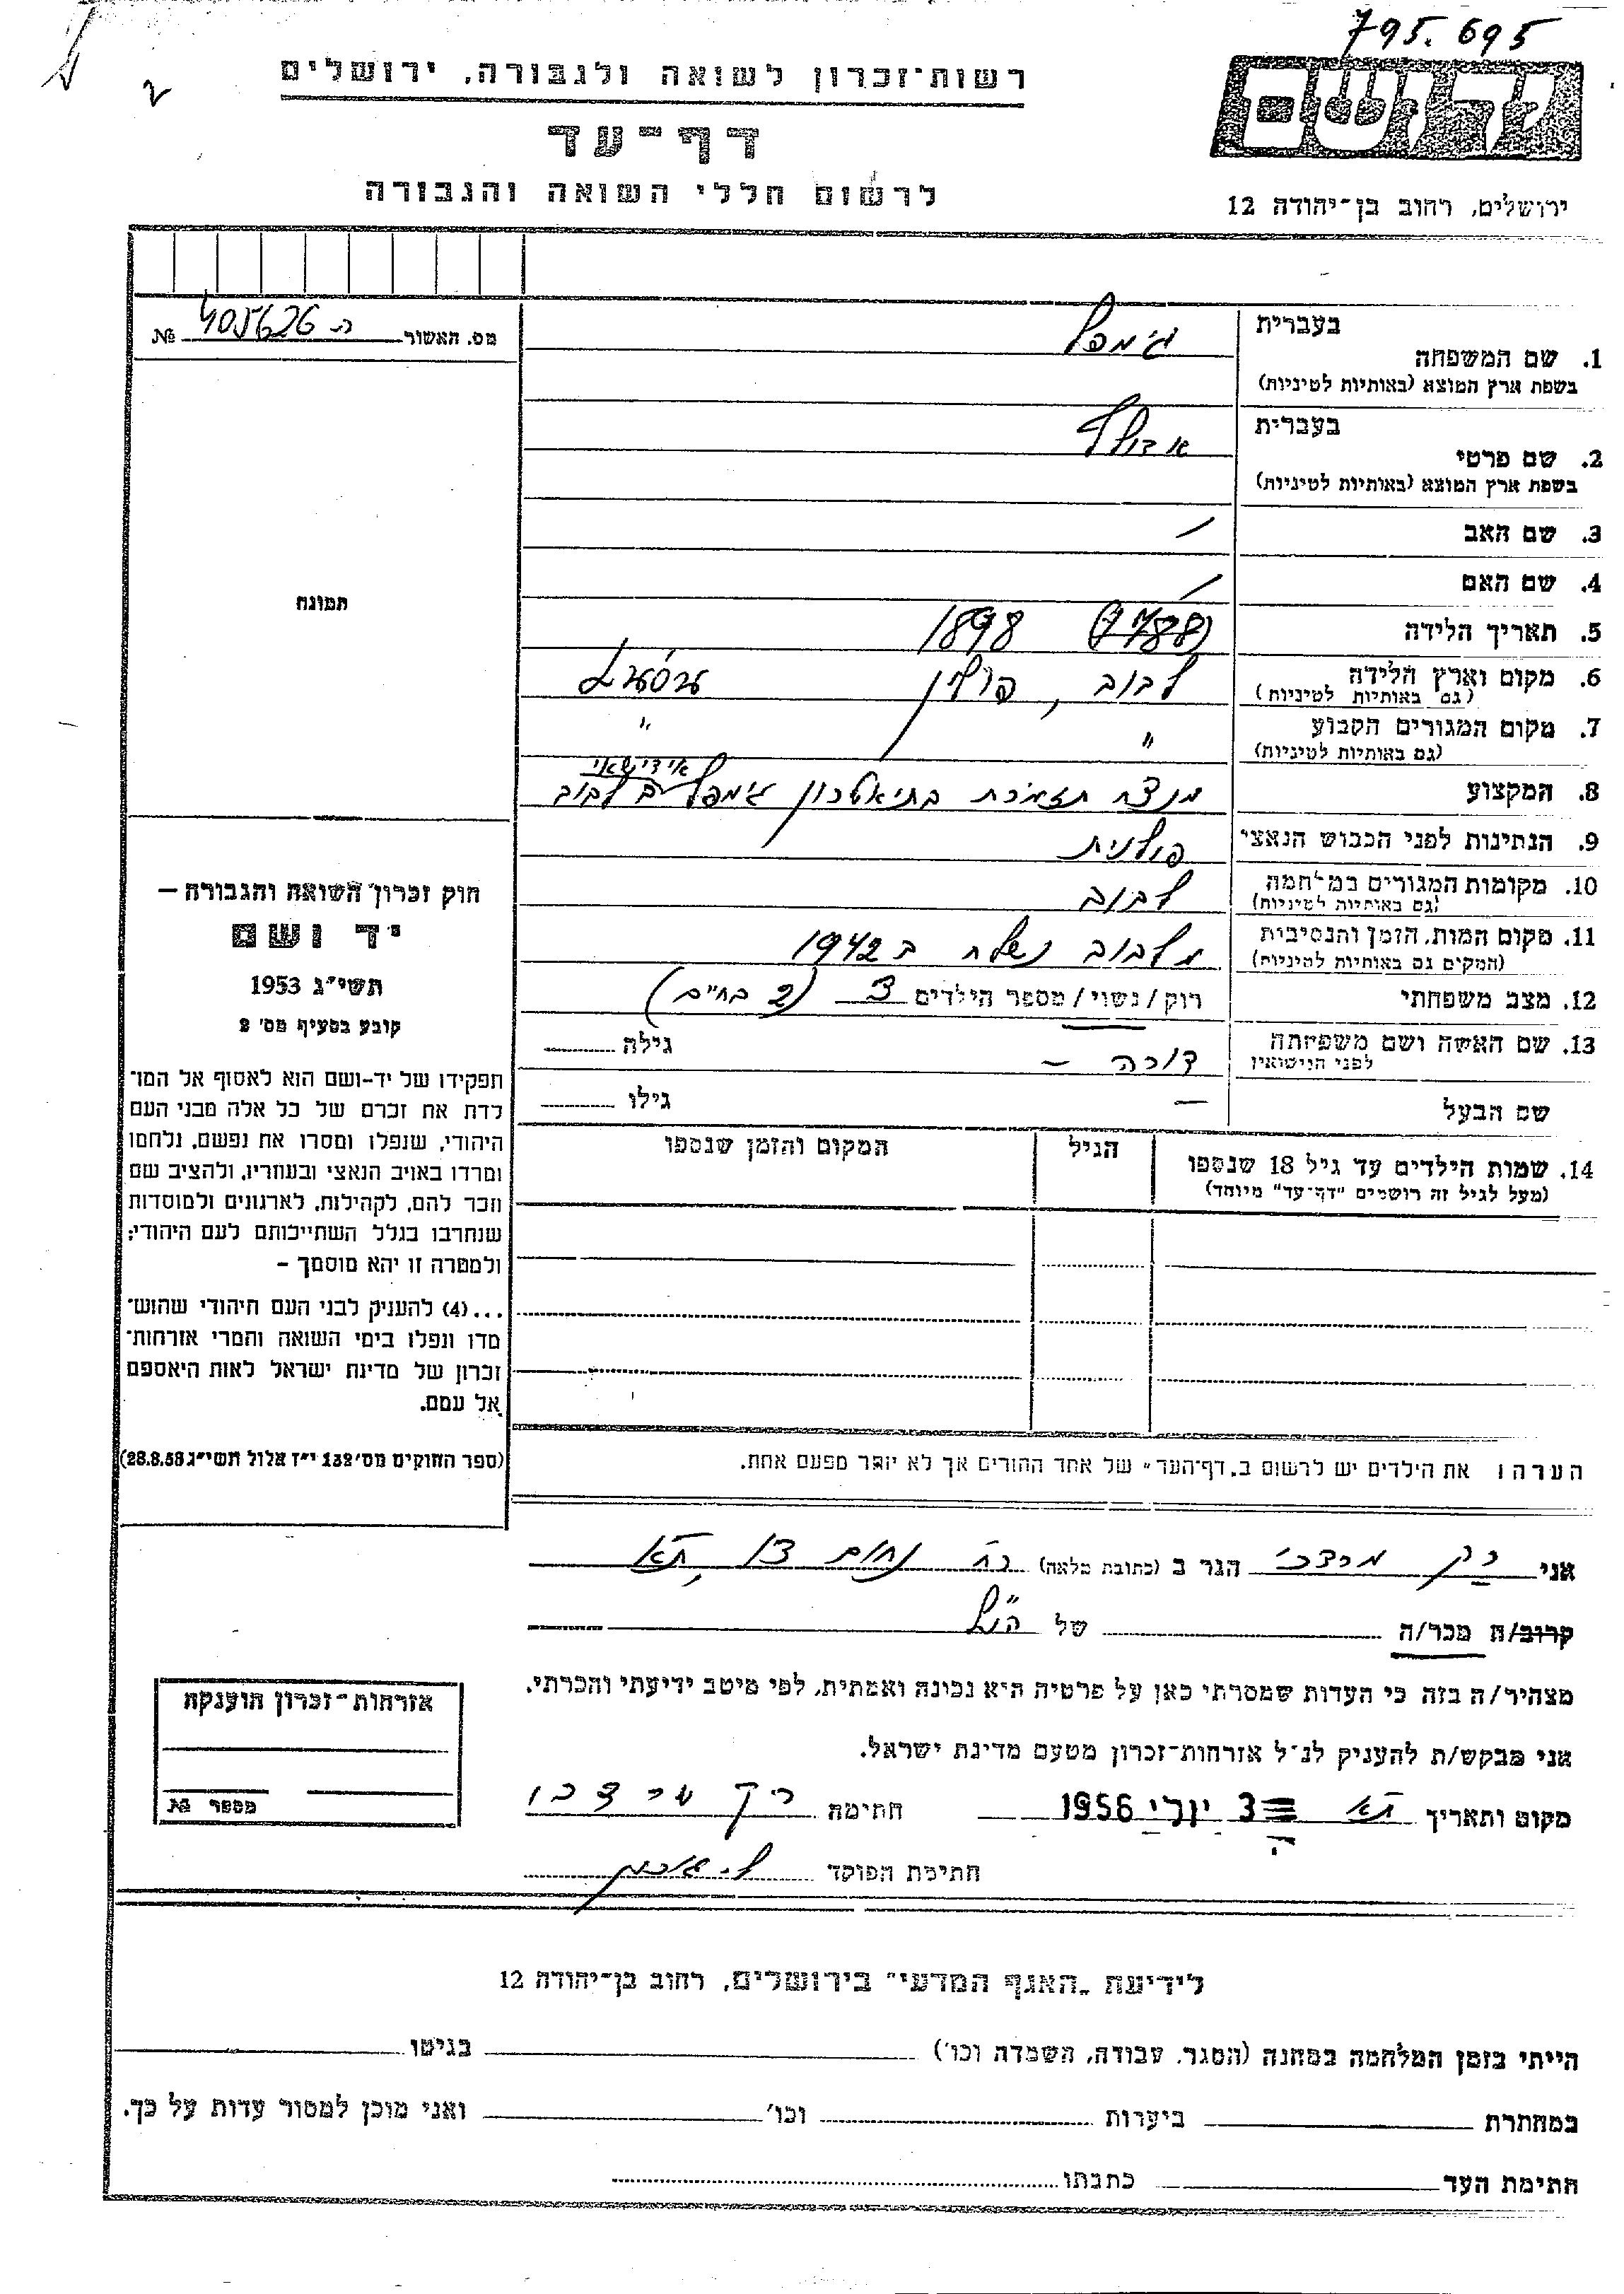 795.695
רשות־זכרון לשואה ולגבורה, ירושלים
דף־עד
לרשום חללי השואה והגבורה
ירושלים, רחוב בן־יהודה 12
מס. האשור ה־405626 №
1. שם המשפחה בעברית גימפל
בשפת ארץ המוצא (באותיות לטיניות)
2. שם פרטי בעברית אדולף
בשפת ארץ המוצא (באותיות לטיניות)
3. שם האב –
4. שם האם –
5. תאריך הלידה 1898
6. מקום וארץ הלידה לבוב, פולין
(גם באותיות לטיניות)
7. מקום המגורים הקבוע " "
(גם באותיות לטיניות)
אידישאי
8. המקצוע מנצח תזמורת בתיאטרון גימפל בלבוב
9. הנתינות לפני הכבוש הנאצי פולנית
10. מקומות המגורים במלחמה לבוב
(גם באותיות לטיניות)
11. מקום המות, הזמן והנסיבות מלבוב נשלח ב 1942
(המקום גם באותיות לטיניות)
12. מצב משפחתי רוק/נשוי/מספר הילדים 3 (2 בח"ים)
13. שם האשה ושם משפחתה – גילה
לפני הנישואין
שם הבעל – גילו
14. שמות הילדים עד גיל 18 שנספו הגיל המקום והזמן שנספו
(מעל לגיל זה רושמים "דף־עד" מיוחד)
הערה: את הילדים יש לרשום ב„דף־העד" של אחד ההורים אך לא יותר מפעם אחת.
תמונה
חוק זכרון השואה והגבורה —
יד ושם
תשי"ג 1953
קובע בסעיף מס' 2
תפקידו של יד-ושם הוא לאסוף אל המו־
לדת את זכרם של כל אלה מבני העם
היהודי, שנפלו ומסרו את נפשם, נלחמו
ומרדו באויב הנאצי ובעוזריו, ולהציב שם
וזכר להם, לקהילות, לארגונים ולמוסדות
שנחרבו בגלל השתייכותם לעם היהודי;
ולמטרה זו יהא מוסמך –
...(4) להעניק לבני העם היהודי שהוש־
מדו ונפלו בימי השואה והמרי אזרחות־
זכרון של מדינת ישראל לאות היאספם
אל עמם.
(ספר החוקים מס' 132 י"ז אלול תשי"ג 28.8.53)
אני רק מרדכי הגר ב (כתובת מלאה) רח נחום 13, תא
קרוב/ה מכר/ה של הנ"ל
מצהיר/ה בזה כי העדות שמסרתי כאן על פרטיה היא נכונה ואמתית, לפי מיטב ידיעתי והכרתי.
אני מבקש/ת להעניק לנ"ל אזרחות־זכרון מטעם מדינת ישראל.
מקום ותאריך תא 3 יולי 1956 חתימה רק מרדכי
חתימת הפוקד
אזרחות־זכרון הוענקה
מספר №
לידיעת „האגף המדעי" בירושלים, רחוב בן־יהודה 12
הייתי בזמן המלחמה במחנה (הסגר, עבודה, השמדה וכו') בגיטו
במחתרת ביערות וכו' ואני מוכן למסור עדות על כך.
חתימת העד כתבתו